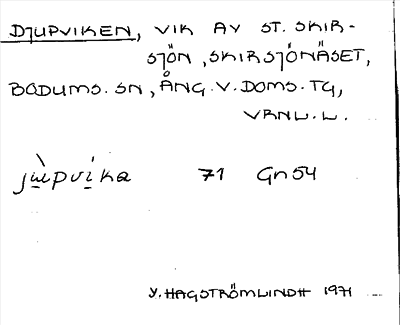 DJUPVIKEN, VIK AV ST. SKIR-
SJÖN, SKIRSJÖNÄSET,
BODUMS. SN, ÅNG. V. DOMS. TG,
VRNL. L.
jùpvika 71 Gn54
Y. HAGSTRÖMLINDH 1971